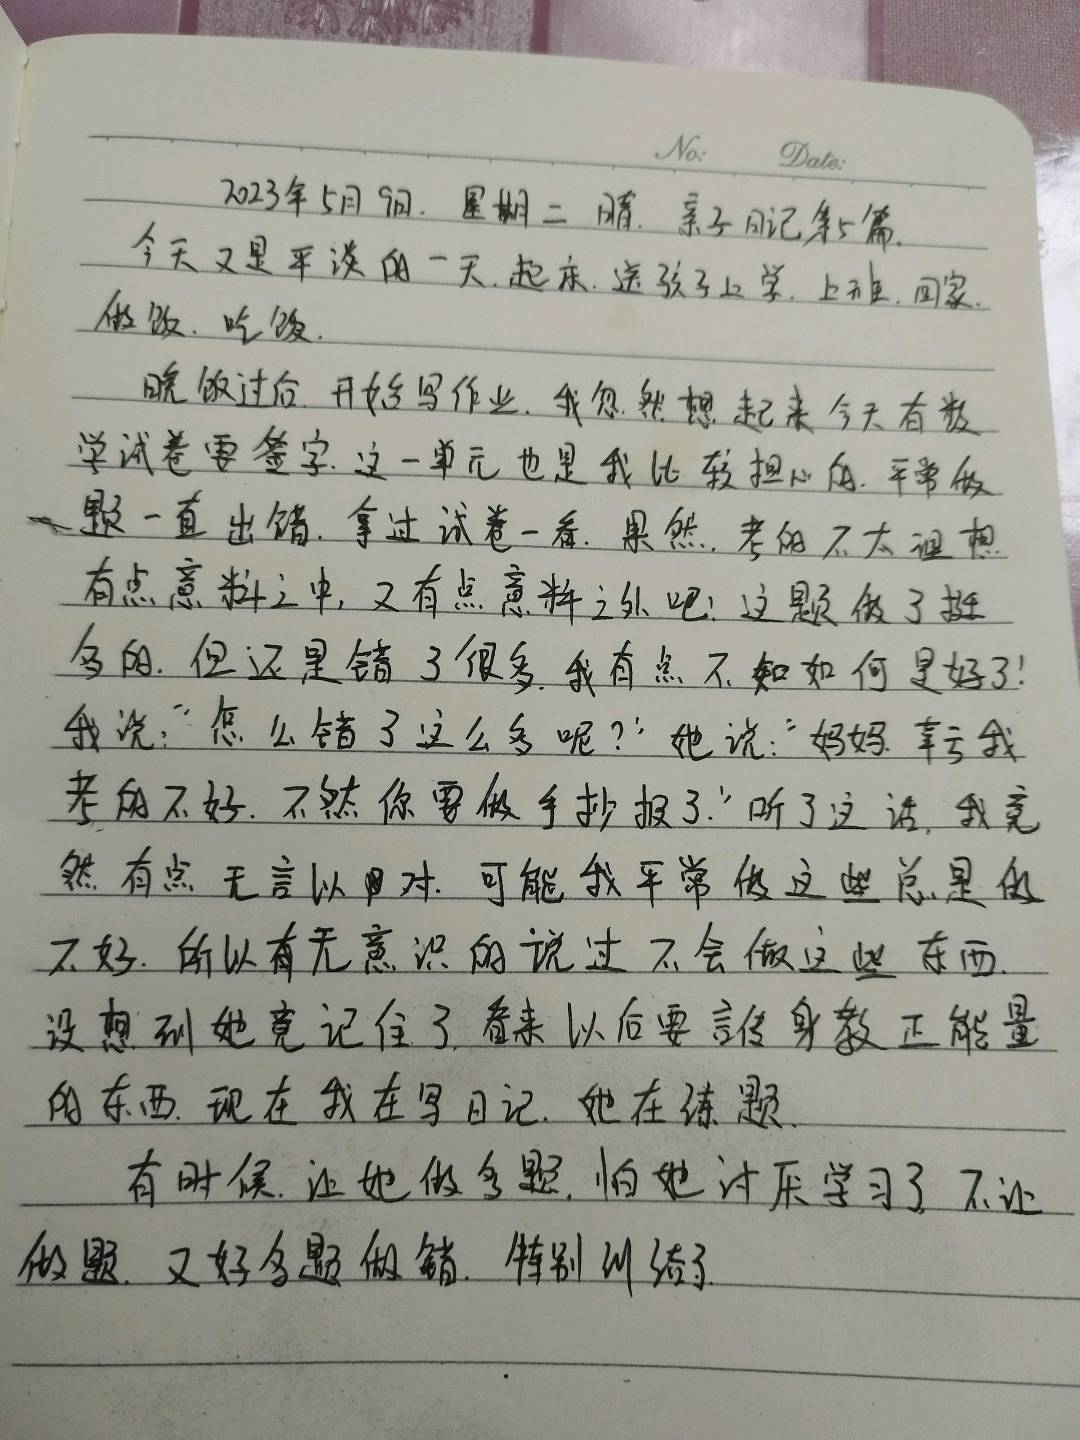 No: Date:
2023年5月9日. 星期二 晴. 亲子日记第5篇.
今天又是平淡的一天.起床.送孩子上学.上班.回家.
做饭.吃饭.
晚饭过后.开始写作业.我忽然想起来今天有数
学试卷要签字.这一单元也是我比较担心的.平常做
题一直出错.拿过试卷一看.果然.考的不太理想
有点意料之中,又有点意料之外吧!这题做了挺
多的.但还是错了很多.我有点不知如何是好了!
我说:“怎么错了这么多呢?”她说:“妈妈.幸亏我
考的不好.不然你要做手抄报了!”听了这话.我竟
然有点无言以对.可能我平常做这些总是做
不好.所以有无意识的说过不会做这些东西.
没想到她竟记住了.看来以后要言传身教正能量
的东西.现在我在写日记.她在练题.
有时候.让她做多题.怕她讨厌学习了.不让
做题.又好多题做错.特别纠结了.